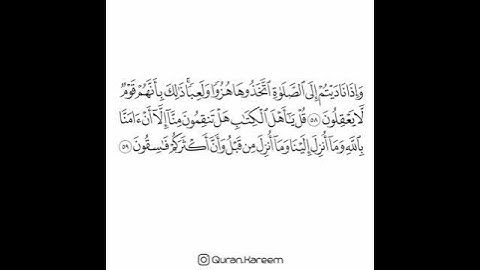 وَإِذَا نَادَيْتُمْ إِلَى ٱلصَّلَوٰةِ ٱتَّخَذُوهَا هُزُوًا وَلَعِبًا ۚ ذَٰلِكَ بِأَنَّهُمْ قَوْمٌ
لَّا يَعْقِلُونَ ٥٨ قُلْ يَـٰٓأَهْلَ ٱلْكِتَـٰبِ هَلْ تَنقِمُونَ مِنَّآ إِلَّآ أَنْ ءَامَنَّا
بِٱللَّهِ وَمَآ أُنزِلَ إِلَيْنَا وَمَآ أُنزِلَ مِن قَبْلُ وَأَنَّ أَكْثَرَكُمْ فَـٰسِقُونَ ٥٩
Quran.Kareem